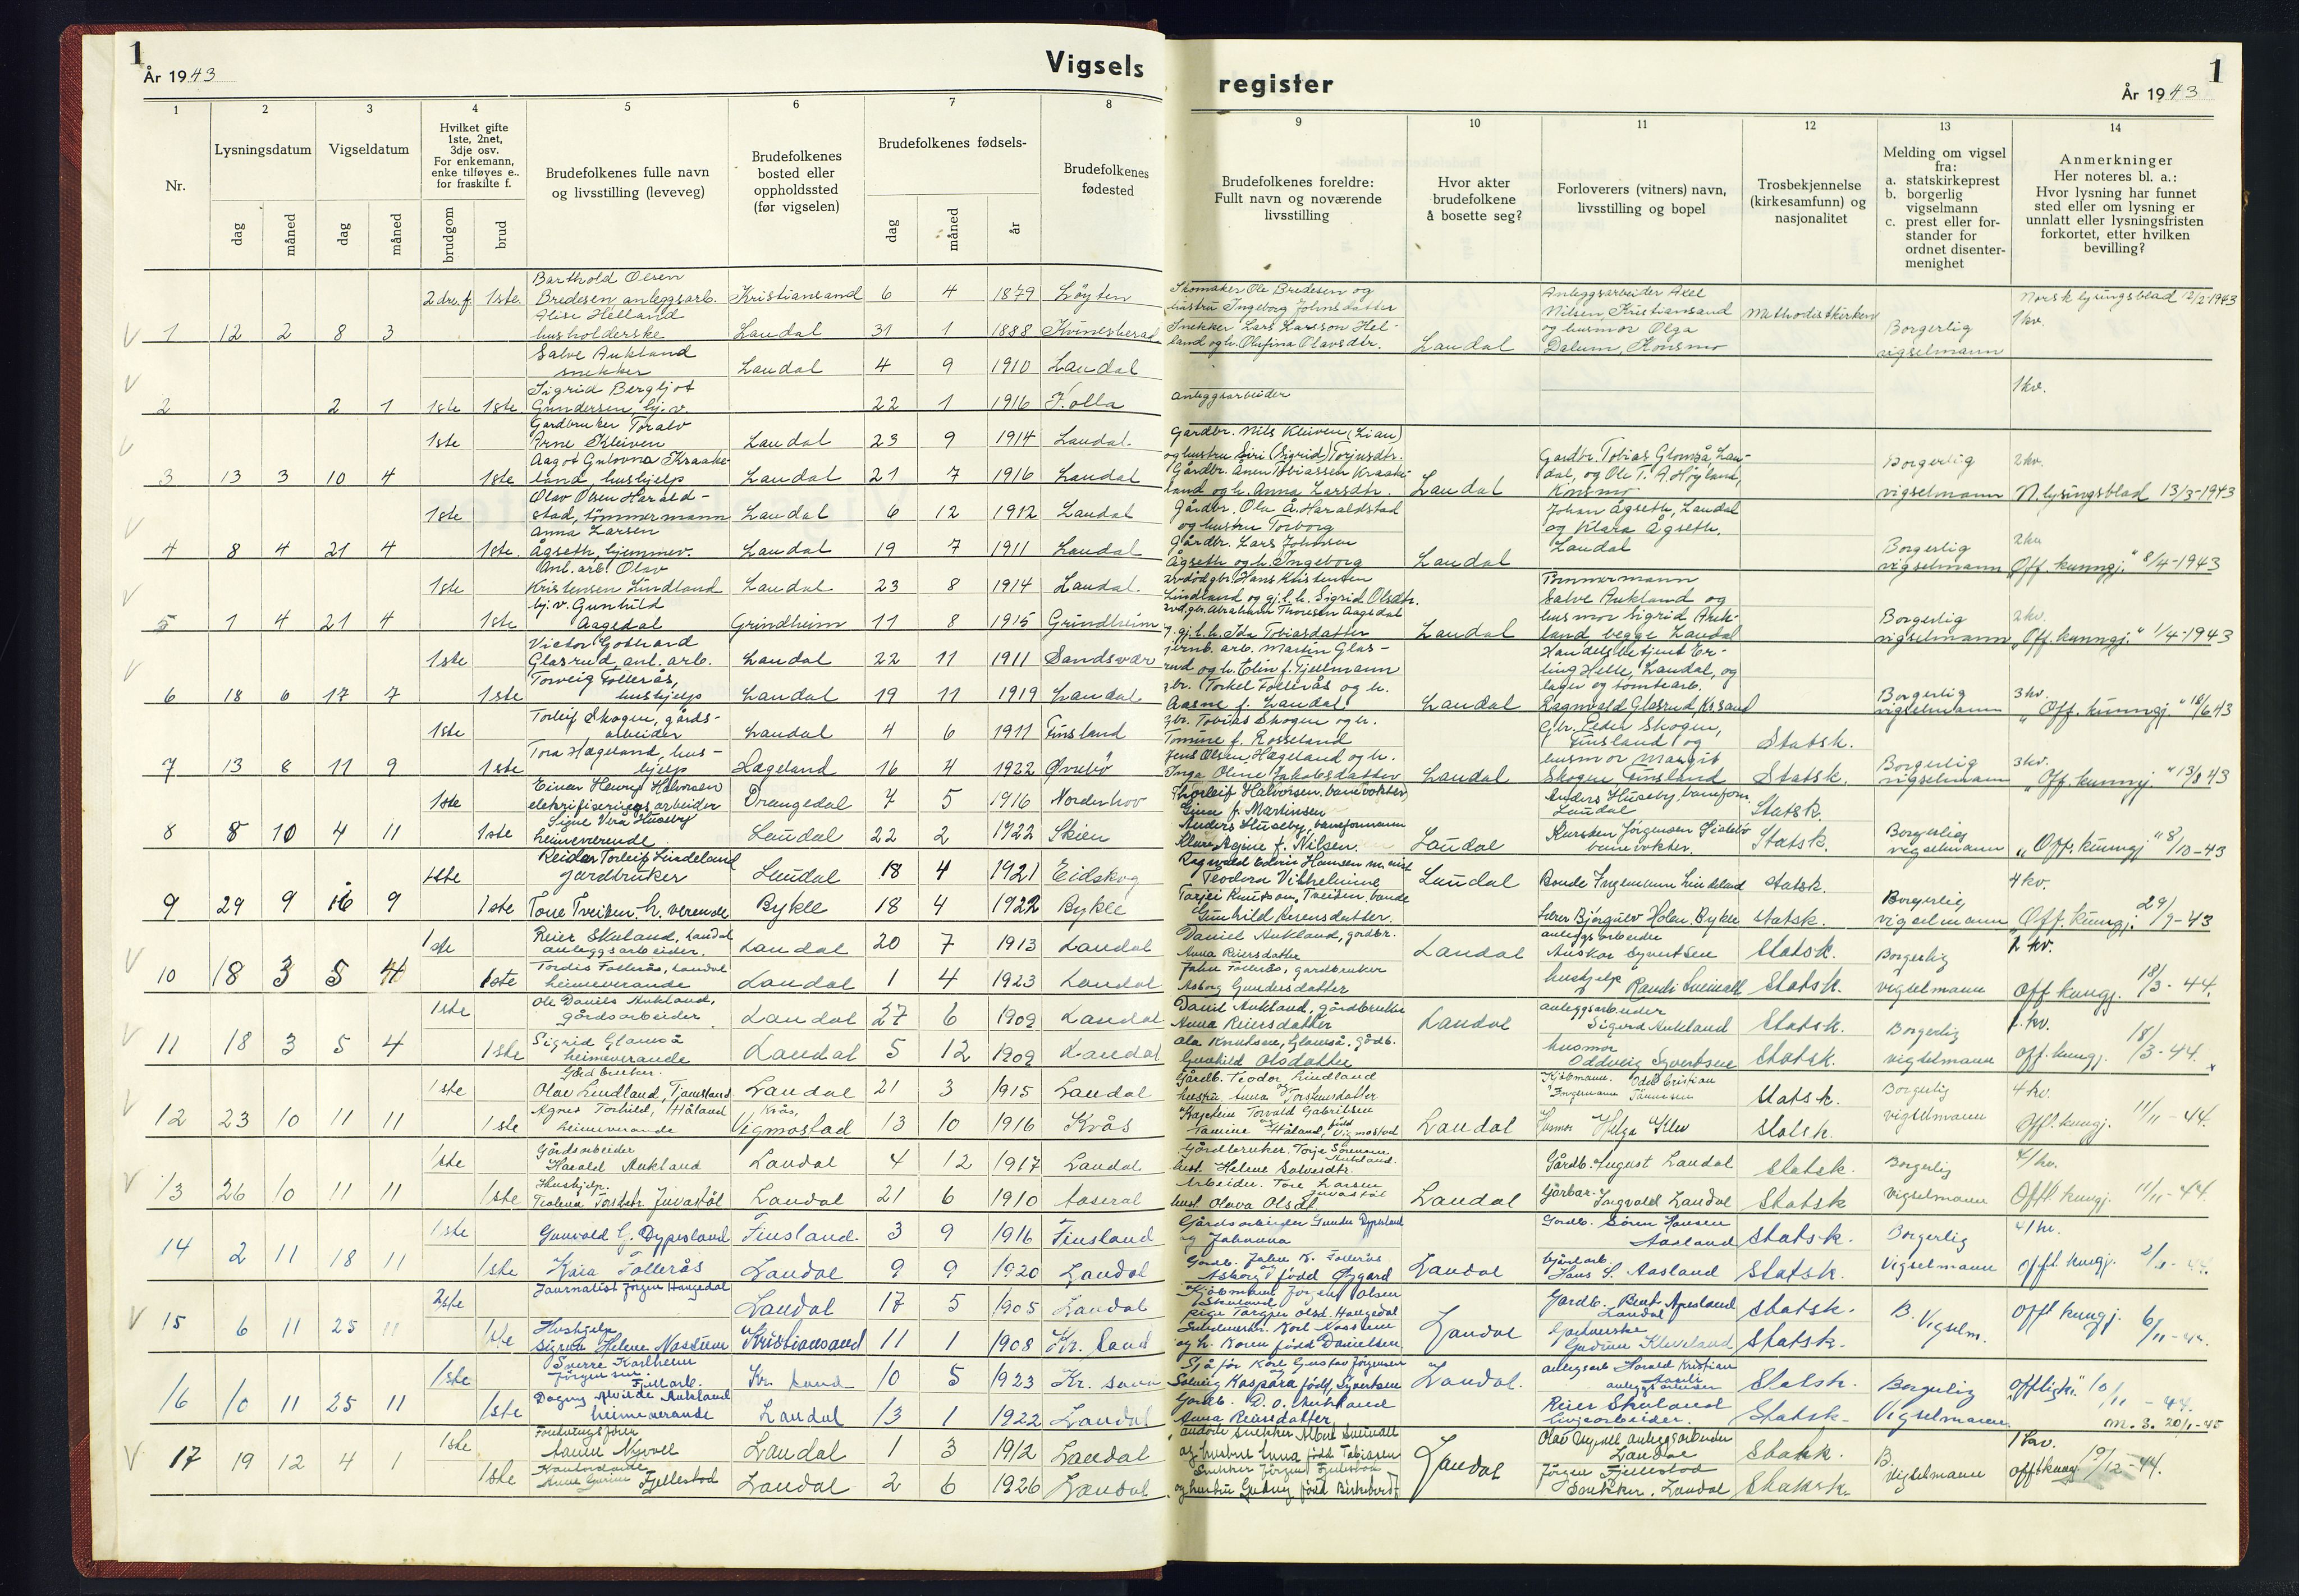 1
År 1943
Vigsels
register
År 1943
1
1 2 3 4 5 6 7 8 9 10 11 12 13 14
Nr.
Lysningsdatum
Vigseldatum
Hvilket gifte
1ste, 2net,
3dje osv.
For enkemann,
enke tilføyes e..
for fraskilte f.
Brudefolkenes fulle navn
og livsstilling (leveveg)
Brudefolkenes
bosted eller
oppholdssted
(før vigselen)
Brudefolkenes fødsels-
Brudefolkenes
fødested
Brudefolkenes foreldre:
Fullt navn og noværende
livsstilling
Hvor akter
brudefolkene
å bosette seg?
Forloverers (vitners) navn,
livsstilling og bopel
Trosbekjennelse
(kirkesamfunn) og
nasjonalitet
Melding om vigsel
fra:
a. statskirkeprest
b. borgerlig
vigselmann
c. prest eller for-
stander for
ordnet disenter-
menighet
Anmerkninger
Her noteres bl. a.:
Hvor lysning har funnet
sted eller om lysning er
unnlatt eller lysningsfristen
forkortet, etter hvilken
bevilling?
dag måned dag måned brudgom brud dag måned år
Barthold Olsen
2 dre. f. 1ste. Bredesen anleggsarb. Kristiansand 6 4 1879 Löyten Skomaker Ole Bredesen og hustru Ingeborg Johnsdatter Anleggsarbeider Axel Nilsen, Kristiansand Methodistkirken Norsk lysingsblad 12/2-1943
Alise Helland
1 12 2 8 3 husholderske Laudal 31 1 1888 Kvinesherad Snekker Lars Larsson Helland og h. Olufina Olavsdtr. Laudal og husmor Olga Dalum, Konsmo Borgerlig vigselmann 1 kv.
Salve Aukland
snekker Laudal 4 9 1910 Laudal
Sigrid Bergljot
2 2 1 1ste 1ste. Gundersen, hj. v. 22 1 1916 anleggsarbeider 1 kv.
Gardbruker Toralv
1ste Arne Kleiven Laudal 23 9 1914 Laudal. Gardbr. Nils Kleiven (Lian) og hustru Siri (Sigrid) Torjusdtr.
Aagot Gulovna Kraake-
3 13 3 10 4 1ste land, hushjelp Laudal 21 7 1916 Laudal Gårdbr. Ånen Tobiassen Kraakeland og h. Anna Larsdtr. Laudal Gardbr. Tobias Glomså, Laudal, og Ole T. A. Högland, Konsmo Borgerlig vigselmann 2 kv. N. lysingsblad 13/3-1943
Olav Olsen Harald-
1ste stad, tömmermann Laudal 6 12 1912 Laudal Gårdbr. Ola Å. Haraldstad og hustru Torborg
Anna Larsen
4 8 4 21 4 1ste. Ågseth, hjemmev. Laudal 19 7 1911 Laudal Gårdbr. Lars Johnsen Ågseth og h. Ingeborg Laudal Johan Ågseth, Laudal og Klara Ågseth, Laudal Borgerlig vigselmann 2 kv. „Off. kunngj." 8/4-1943
Anl. arb. Olav
1ste Kristensen Lindland Laudal 23 8 1914 Laudal. avdöd gbr. Hans Kristensen Lindland og gj. l. h. Sigrid Olsdtr.
hj. v. Gunhild
5 1 4 21 4 1ste Aagedal Grindheim 11 8 1915 Grindheim avd. gbr. Abraham Thoresen Aagedal og gj. l. h. Ida Tobiasdatter Laudal Tömmermann Salve Aukland og husmor Sigrid Aukland, begge Laudal Borgerlig vigselmann 2 kv. „Off. kunngj." 1/4-1943
Victor Gothard
1ste Glasrud, anl. arb. Laudal 22 11 1911 Sandsvær jernb. arb. Martin Glasrud og h. Elin f. Tjellmann
Torveig Follerås,
6 18 6 17 7 1ste hushjelp Laudal 19 11 1919 Laudal gbr. Torkel Follerås og h. Aasne f. Laudal Laudal Handelsbetjent Erling Helle, Laudal, og lager og tomtearb. Ragnvald Glasrud, Kr.sand Borgerlig vigselmann 3 kv. „Off. kunngj." 18/6.43
Torleif Skogen, gårds-
1ste arbeider Laudal 4 6 1911 Finsland gbr. Tobias Skogen og h. Tomine f. Rosseland Gbr. Peder Skogen, Finsland og Statsk.
Tora Hægeland, hus-
7 13 8 11 9 1ste hjelp Hægeland 16 4 1922 Øvrebö Jens Olsen Hægeland og h. Inga Oline Jakobsdatter Laudal husmor Margit Skogen, Finsland Statsk. Borgerlig vigselmann 3 kv. „Off. kunngj." 13/8 43
Einar Henry Halvorsen
1ste elektrifiseringsarbeider Drangedal 7 5 1916 Norderhov Thorleif Halvorsen, banevokter, Gina f. Martinsen Anders Huseby, baneform. Laudal Statsk.
Signe Vera Huseby
8 8 10 4 11 1ste heimeverende Laudal 22 2 1922 Skien Anders Huseby, baneformann Klara Regine f. Nilsen. Laudal Karsten Jörgensen banevokter. Statsk. Borgerlig vigselmann „Off. kunngj" 8/10-43
Reidar Torleif Lindeland
1ste jordbruker Laudal 18 4 1921 Eidskog Ragnvald Edvin Hansen Teodora Vilhelmine Laudal Bonde Ingemann Lindeland Statsk. 4 kv.
9 29 9 16 9 1ste Tone Treiten. h. verende Bykle 18 4 1922 Bykle Tarjei Knutson, Treiten, bonde Gunhild Reiersdatter. Lærer Björgulv Holen. Bykle Statsk. Borgerlig vigselmann Off. kungj. 29/9-43
Reier Skuland, Laudal
1ste anleggsarbeider. Laudal 20 7 1913 Laudal Daniel Aukland, gardbr. Anna Reiersdatter Laudal anleggsarbeider Anskar Syvertsen Statsk. Borgerlig 2 kv.
Tordis Follerås, Laudal
10 18 3 5 4 1ste heimeverande Laudal 1 4 1923 Laudal John Follerås, gardbruker Asborg Gundersdatter hushjelp Randi Sveinall Statsk. vigselmann Off kungj. 18/3-44.
Ole Daniels Aukland,
1ste gårdsarbeider Laudal 27 6 1909 Laudal Daniel Aukland, gårdbruker Anna Reiersdatter Laudal anleggsarbeider Sigurd Aukland Statsk. Borgerlig kv.
Sigrid Glamså
11 18 3 5 4 1ste heimeverande Laudal 5 12 1909 Laudal Ola Knutsen, Glamså, gårdb. Gunhild Olsdatter husmor Oddveig Syvertsen Statsk. vigselmann Off. kungj. 18/3-44.
Gårdbruker.
1ste Olav Lindland, Laudal 21 3 1915 Laudal Gårdb. Teodor Lindland og hustru Anna Torstensdatter Statsk. Borgerlig 4 kv.
Agnes Torhild, Håland Krås,
12 23 10 11 11 1ste heimeverande Vigmostad 13 10 1916 Krås Torvald Gabrielsen Tamine Håland, Vigmostad Laudal Husmor Helga Statsk. vigselmann Off. kungj. 11/11-44.
Gårdsarbeider
1ste Harald Aukland Laudal 4 12 1917 Laudal Gårdbruker. Torje Sörensen Aukland. hust. Helene Salvesdtr. Gårdb. August Laudal Statsk. Borgerlig 4 kv.
Hushjelp.
13 26 10 11 11 1ste Teolena Torsdtr. Juvastöl Laudal 21 6 1910 Aaseral Arbeider. Tore Larsen Juvastöl hust. Olava Olsdt. Laudal Ingvald Laudal Statsk vigselmann Offl kungj. 11/11-44.
1ste Gunvald G. Dypesland Finsland. 3 9 1916 Finsland Gårdsarbeider Gunder Dypesland og Johanna Gardb. Sören Hansen Aasland Statsk. Borgerlig 4 kv.
14 2 11 18 11 1ste Kaia Follerås Laudal 9 9 1920 Laudal Gårdb. John K. Follerås og Asborg född Öygard Laudal Gårdarb. Hans S. Aasland Statsk. Vigselmann Offl. kungj. 2/11-44.
Journalist Jörgen Haugedal
2ste Laudal 17 5 1905 Laudal Kjöbmann Jörgen Olsen Gardb. Bent Apesland Laudal Statsk. B. Offl kungj. 6/11-44.
Hushjelp
15 6 11 25 11 1ste Signe Helene Nossum Kristiansand 11 1 1908 Kr. Sand Karl Nossum og h. Karen född Danielsen Laudal Gudrun Kleveland Statsk. Vigselm.
Sverre Karlheim
1ste Jörgensen Kr. sand 10 5 1923 Kr. sand Sjåför Karl Gustav Jörgensen Solveig Kaspara född Syvertsen Laudal. anleggsarb Harald Kristian Statsk. Borgerlig Off. 10/11-44.
Dagny Alvilde Aukland
16 10 11 25 11 1ste heimeverande Laudal 13 1 1922 Laudal Gardb. D. O. Aukland Anna Reiersdatter Reier Skuland linjearbeider. Statsk. Vigselmann. m. 3. 20/1-45
Forretningsförer
1ste Nyvoll Laudal 1 3 1912 Laudal snekker Albert Sveinall og hustru Anna född Tobiasen Laudal Olav Nyvoll anleggsarbeider Laudal Statsk. B. 1 kv.
Kontordame
17 19 12 4 1 1ste Fjellestad Laudal 2 6 1926 Laudal Snekker Jörgen Fjellestad og hustru Gudrun född Birkeland Jörgen Fjellestad Snekker. Laudal Statsk. Vigselmann Off. kungj 19/12-44.